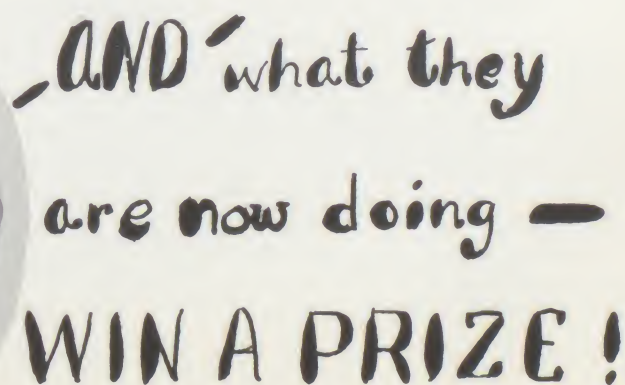 AND what they
are now doing —
WIN A PRIZE!